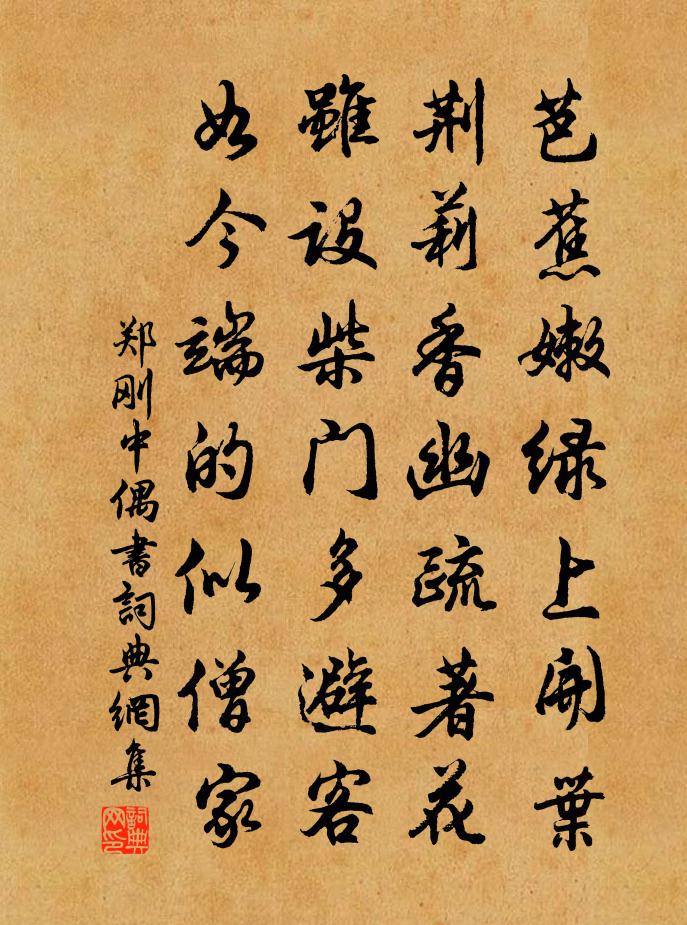 芭蕉嫩绿上開葉
荆莉香幽疏著花
雖设柴门多避客
如今端的似僧家
郑刚中偶書詞典網集
詞典网印